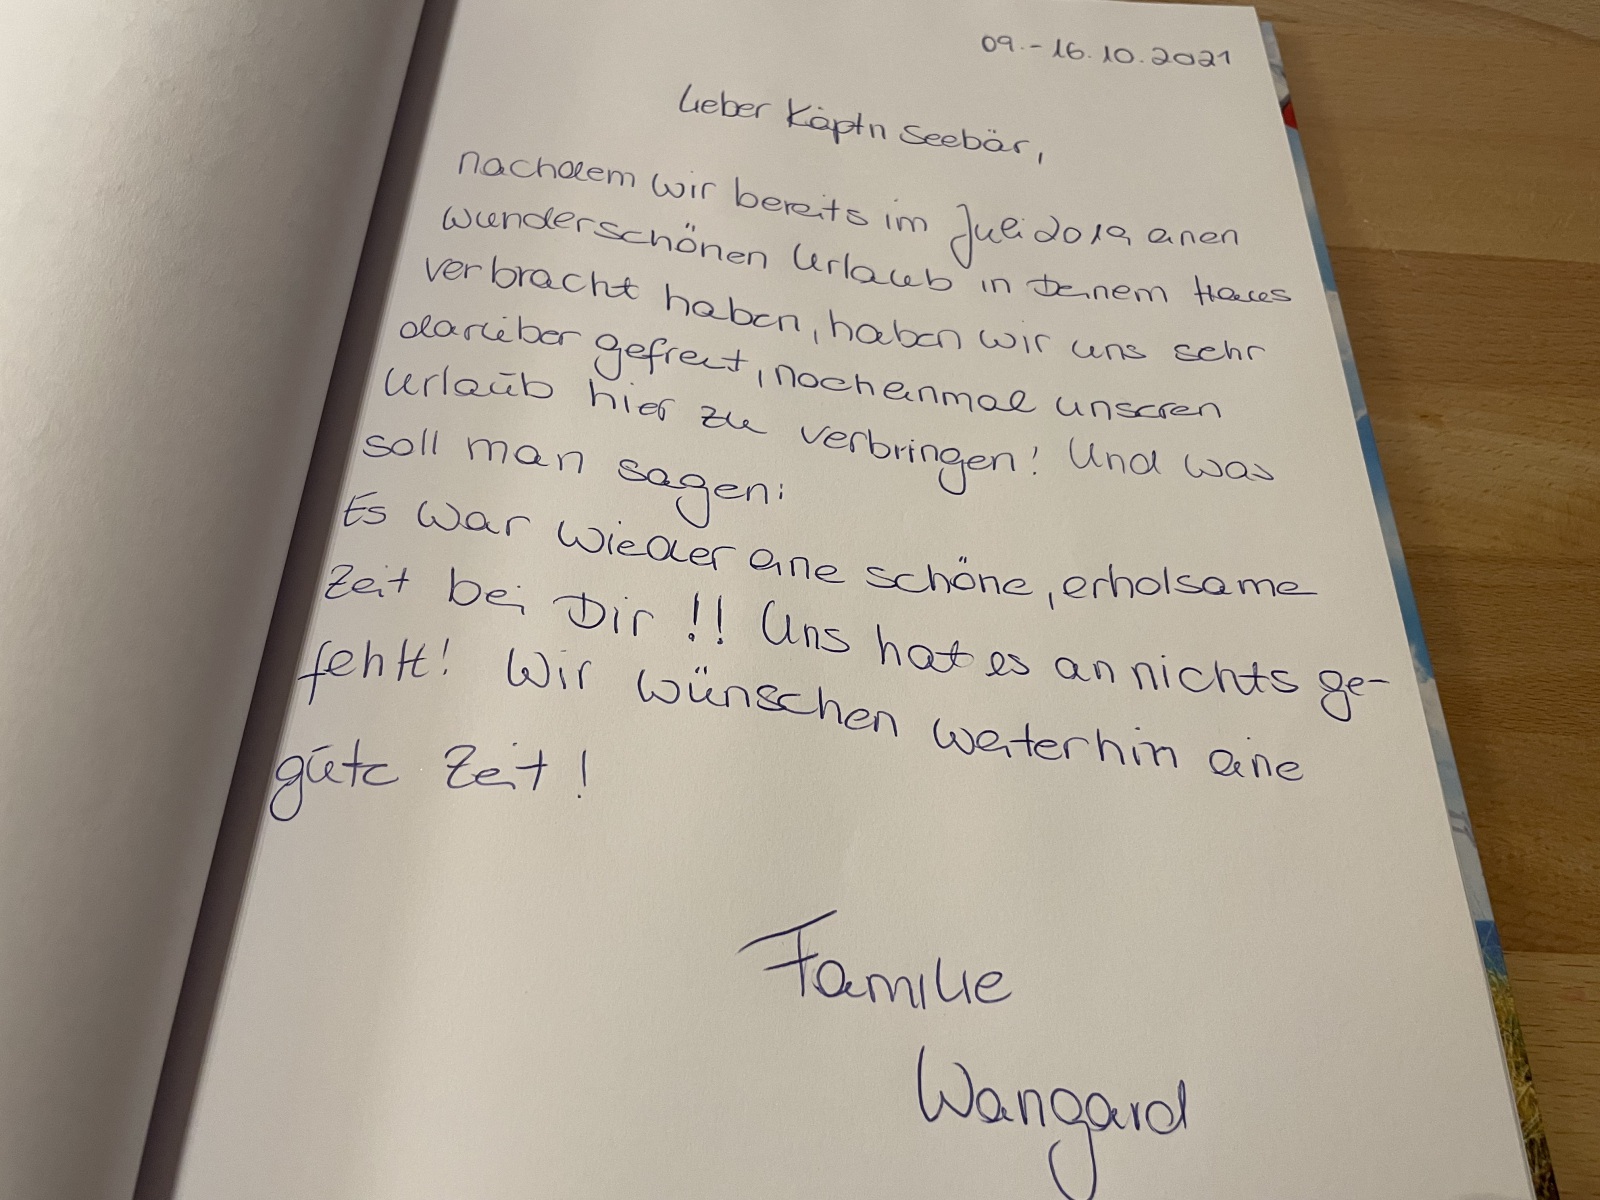 09.-16.10.2021
Lieber Käptn Seebär,
nachdem wir bereits im Juli 2019 einen
wunderschönen Urlaub in Deinem Haus
verbracht haben, haben wir uns sehr
darüber gefreut, nocheinmal unseren
Urlaub hier zu verbringen! Und was
soll man sagen:
Es war wieder eine schöne, erholsame
Zeit bei Dir!! Uns hat es an nichts ge-
fehlt! Wir wünschen weiterhin eine
gute Zeit!
Familie
Wangard